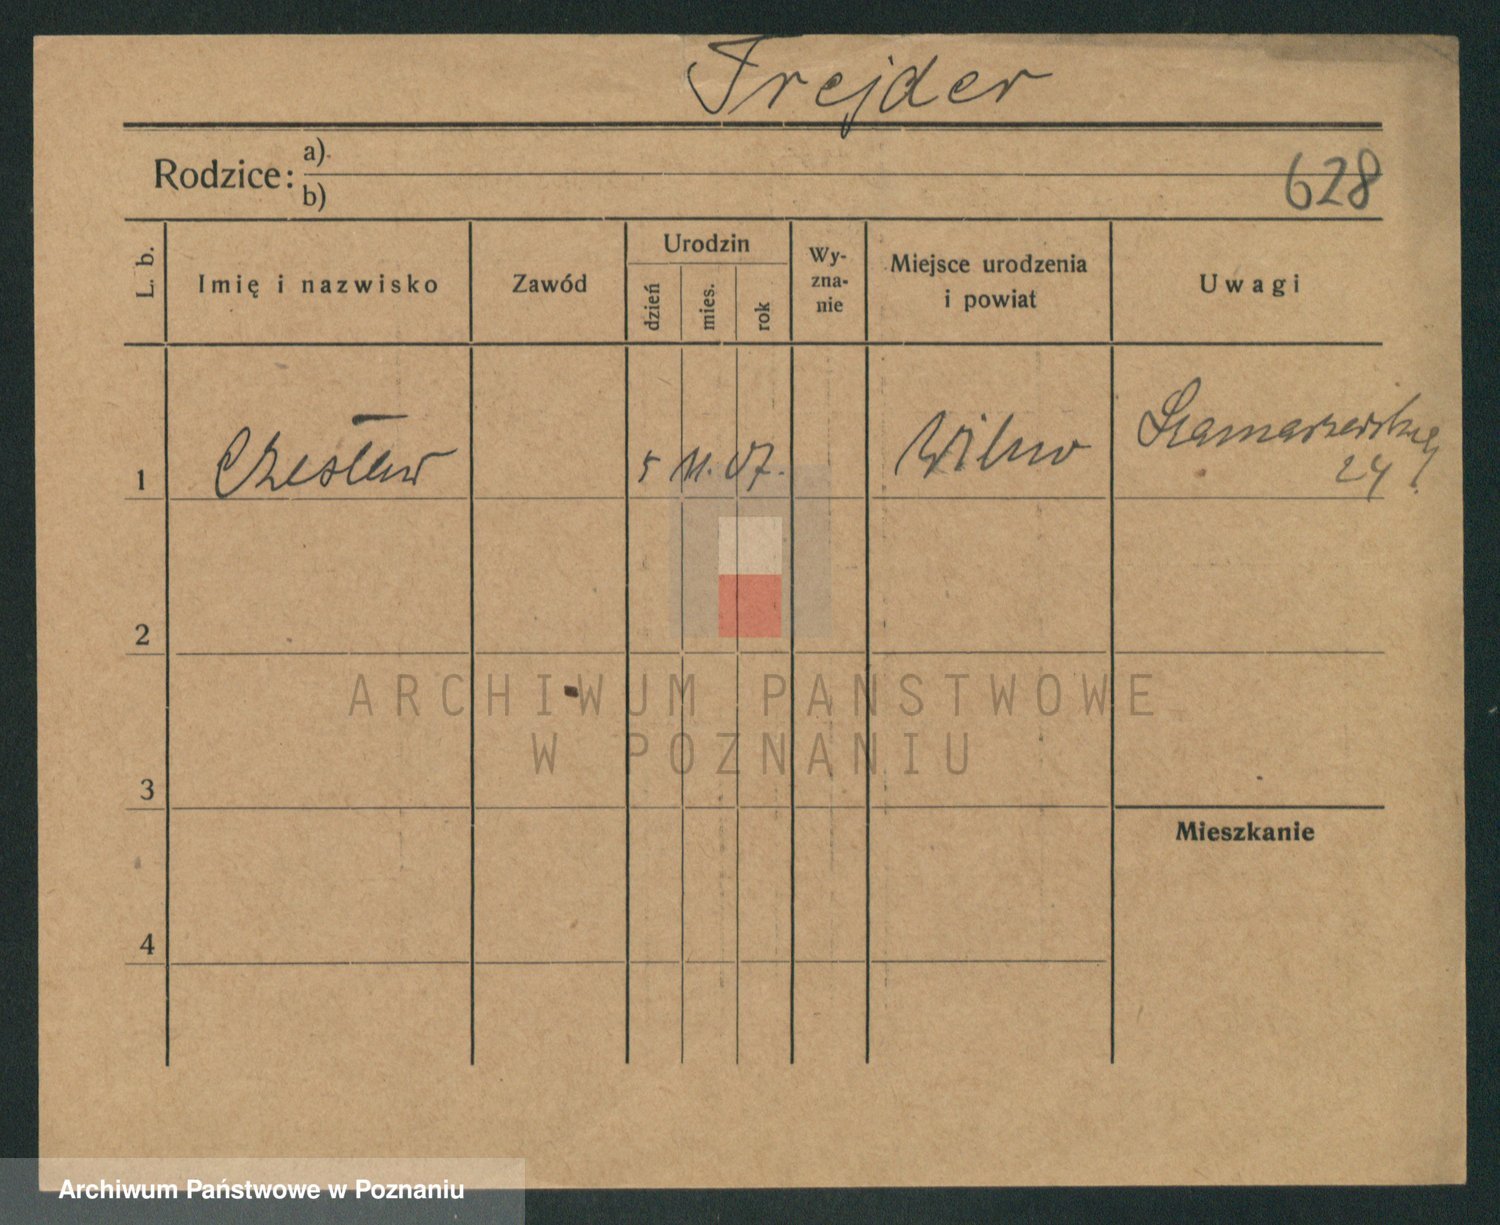 Frejder
Rodzice: a)
b)
628
L. b.
Imię i nazwisko
Zawód
Urodzin
dzień
mies.
rok
Wy-
zna-
nie
Miejsce urodzenia
i powiat
Uwagi
1 Czesław 5 11. 07. Wilno
24
2
3
Mieszkanie
4
ARCHIWUM PAŃSTWOWE
W POZNANIU
Archiwum Państwowe w Poznaniu